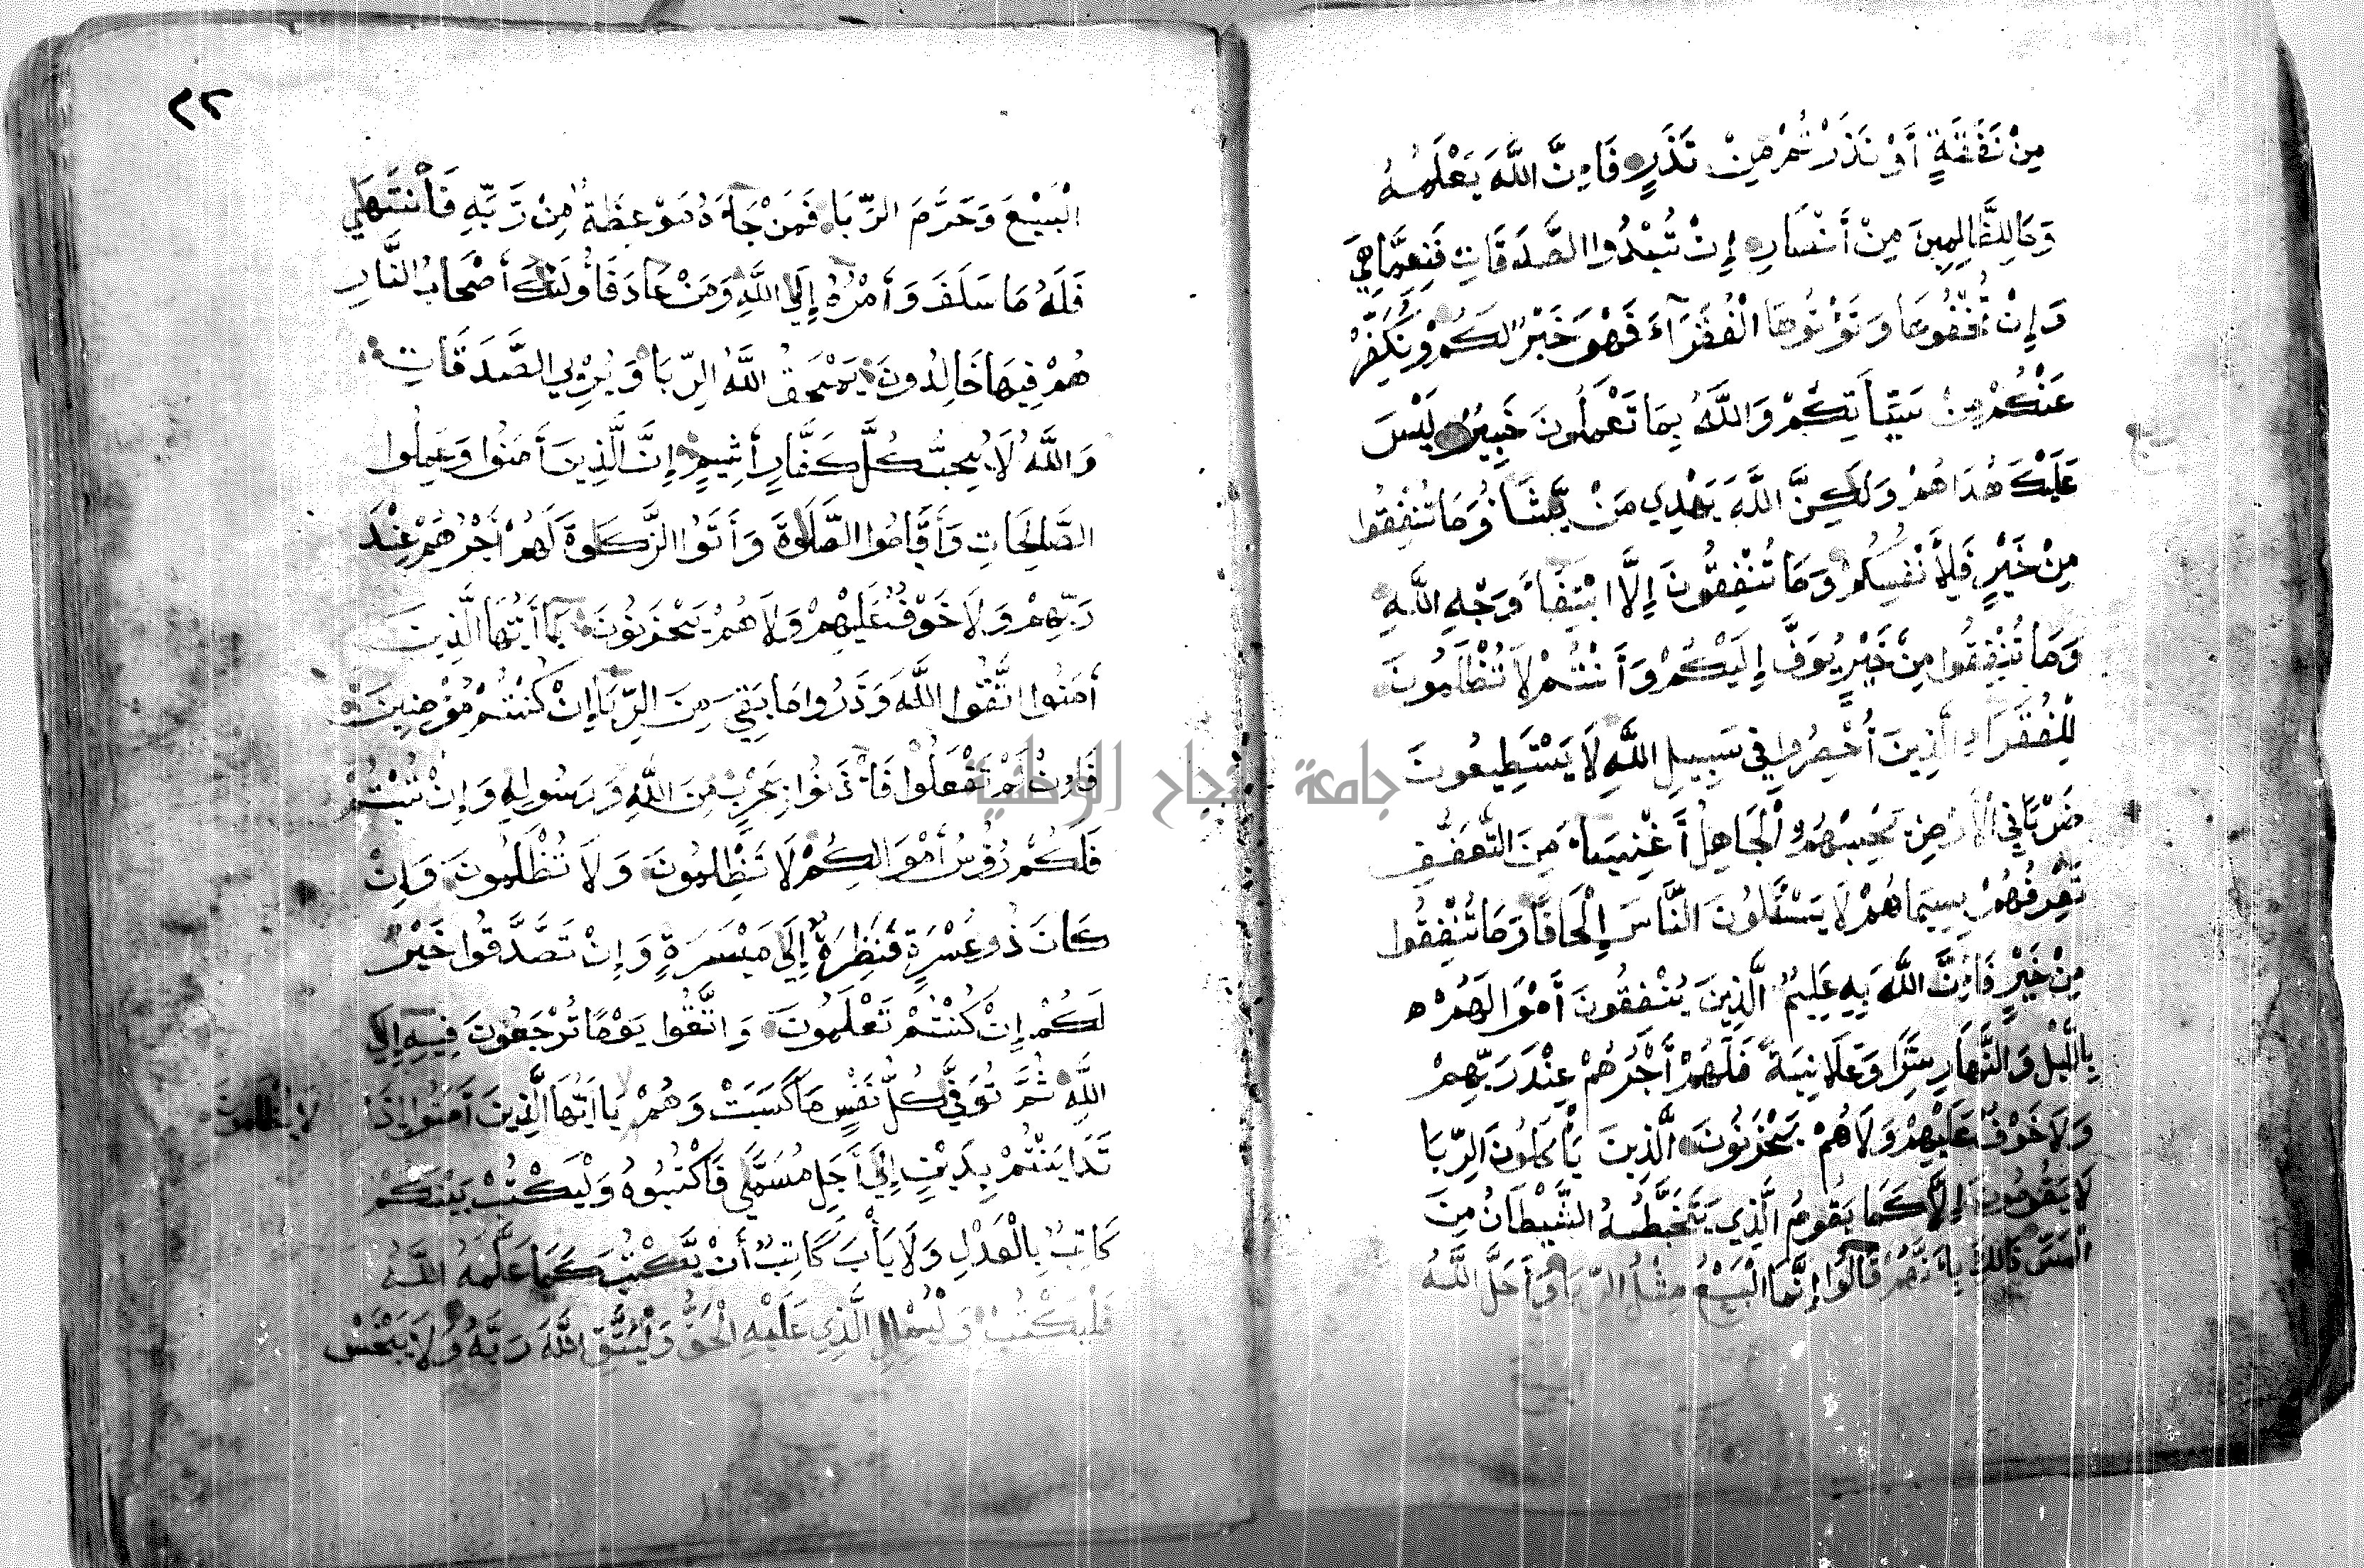 مِنْ نَفَقَةٍ أَوْ نَذَرْتُمْ مِنْ نَذْرٍ فَاِنَّ اللَّهَ يَعْلَمُهُ
وَمَا لِلظَّالِمِينَ مِنْ أَنْصَارٍ إِنْ تُبْدُوا الصَّدَقَاتِ فَنِعِمَّا هِيَ
وَإِنْ تُخْفُوهَا وَتُؤْتُوهَا الْفُقَرَآءَ فَهْوَ خَيْرٌ لَكُمْ وَنُكَفِّرْ
عَنْكُمْ مِنْ سَيِّئَاتِكُمْ وَاللَّهُ بِمَا تَعْمَلُونَ خَبِيرٌ لَيْسَ
عَلَيْكَ هُدَاهُمْ وَلَكِنَّ اللَّهَ يَهْدِي مَنْ يَّشَاءُ وَمَا تُنْفِقُوا
مِنْ خَيْرٍ فَلِأَنْفُسِكُمْ وَمَا تُنْفِقُونَ إِلَّا ابْتِغَاءَ وَجْهِ اللَّهِ
وَمَا تُنْفِقُوا مِنْ خَيْرٍ يُوَفَّ إِلَيْكُمْ وَأَنْتُمْ لَا تُظْلَمُونَ
لِلْفُقَرَاءِ الَّذِينَ أُحْصِرُوا فِي سَبِيلِ اللَّهِ لَا يَسْتَطِيعُونَ
ضَرْبًا فِي الْأَرْضِ يَحْسِبُهُمُ الْجَاهِلُ أَغْنِيَاءَ مِنَ التَّعَفُّفِ
تَعْرِفُهُمْ بِسِيمَاهُمْ لَا يَسْئَلُونَ النَّاسَ إِلْحَافًا وَمَا تُنْفِقُوا
مِنْ خَيْرٍ فَاِنَّ اللَّهَ بِهِ عَلِيمٌ الَّذِينَ يُنْفِقُونَ أَمْوَالَهُمْ
بِاللَّيْلِ وَالنَّهَارِ سِرًّا وَعَلَانِيَةً فَلَهُمْ أَجْرُهُمْ عِنْدَ رَبِّهِمْ
وَلَا خَوْفٌ عَلَيْهِمْ وَلَا هُمْ يَحْزَنُونَ الَّذِينَ يَأْكُلُونَ الرِّبَا
لَا يَقُومُونَ إِلَّا كَمَا يَقُومُ الَّذِي يَتَخَبَّطُهُ الشَّيْطَانُ مِنَ
الْمَسِّ ذَلِكَ بِأَنَّهُمْ قَالُوا إِنَّمَا الْبَيْعُ مِثْلُ الرِّبَا وَأَحَلَّ اللَّهُ
٢٢
الْبَيْعَ وَحَرَّمَ الرِّبَا فَمَنْ جَاءَهُ مَوْعِظَةٌ مِنْ رَّبِّهِ فَانْتَهَى
فَلَهُ مَا سَلَفَ وَأَمْرُهُ إِلَى اللَّهِ وَمَنْ عَادَ فَأُولَئِكَ أَصْحَابُ النَّارِ
هُمْ فِيهَا خَالِدُونَ يَمْحَقُ اللَّهُ الرِّبَا وَيُرْبِي الصَّدَقَاتِ
وَاللَّهُ لَا يُحِبُّ كُلَّ كَفَّارٍ أَثِيمٍ إِنَّ الَّذِينَ أَمَنُوا وَعَمِلُوا
الصَّالِحَاتِ وَأَقَامُوا الصَّلَوةَ وَأَتَوُا الزَّكَوةَ لَهُمْ أَجْرُهُمْ عِنْدَ
رَبِّهِمْ وَلَا خَوْفٌ عَلَيْهِمْ وَلَا هُمْ يَحْزَنُونَ يَا أَيُّهَا الَّذِينَ
أَمَنُوا اتَّقُوا اللَّهَ وَذَرُوا مَا بَقِيَ مِنَ الرِّبَا إِنْ كُنْتُمْ مُؤْمِنِينَ
فَاِنْ لَمْ تَفْعَلُوا فَأْذَنُوا بِحَرْبٍ مِنَ اللَّهِ وَرَسُولِهِ وَإِنْ تُبْتُمْ
فَلَكُمْ رُؤُسُ أَمْوَالِكُمْ لَا تَظْلِمُونَ وَلَا تُظْلَمُونَ وَإِنْ
كَانَ ذُو عُسْرَةٍ فَنَظِرَةٌ إِلَى مَيْسَرَةٍ وَإِنْ تَصَّدَّقُوا خَيْرٌ
لَكُمْ إِنْ كُنْتُمْ تَعْلَمُونَ وَاتَّقُوا يَوْمًا تُرْجَعُونَ فِيهِ إِلَى
اللَّهِ ثُمَّ تُوَفَّى كُلُّ نَفْسٍ مَا كَسَبَتْ وَهُمْ يَا أَيُّهَا الَّذِينَ أَمَنُوا إِذَا
لَا يُظْلَمُونَ
تَدَايَنْتُمْ بِدَيْنٍ إِلَى أَجَلٍ مُسَمًّى فَاكْتُبُوهُ وَلْيَكْتُبْ بَيْنَكُمْ
كَاتِبٌ بِالْعَدْلِ وَلَا يَأْبَ كَاتِبٌ أَنْ يَّكْتُبَ كَمَا عَلَّمَهُ اللَّهُ
فَلْيَكْتُبْ وَلْيُمْلِلِ الَّذِي عَلَيْهِ الْحَقُّ وَلْيَتَّقِ اللَّهَ رَبَّهُ وَلَا يَبْخَسْ
جامعة النجاح الوطنية